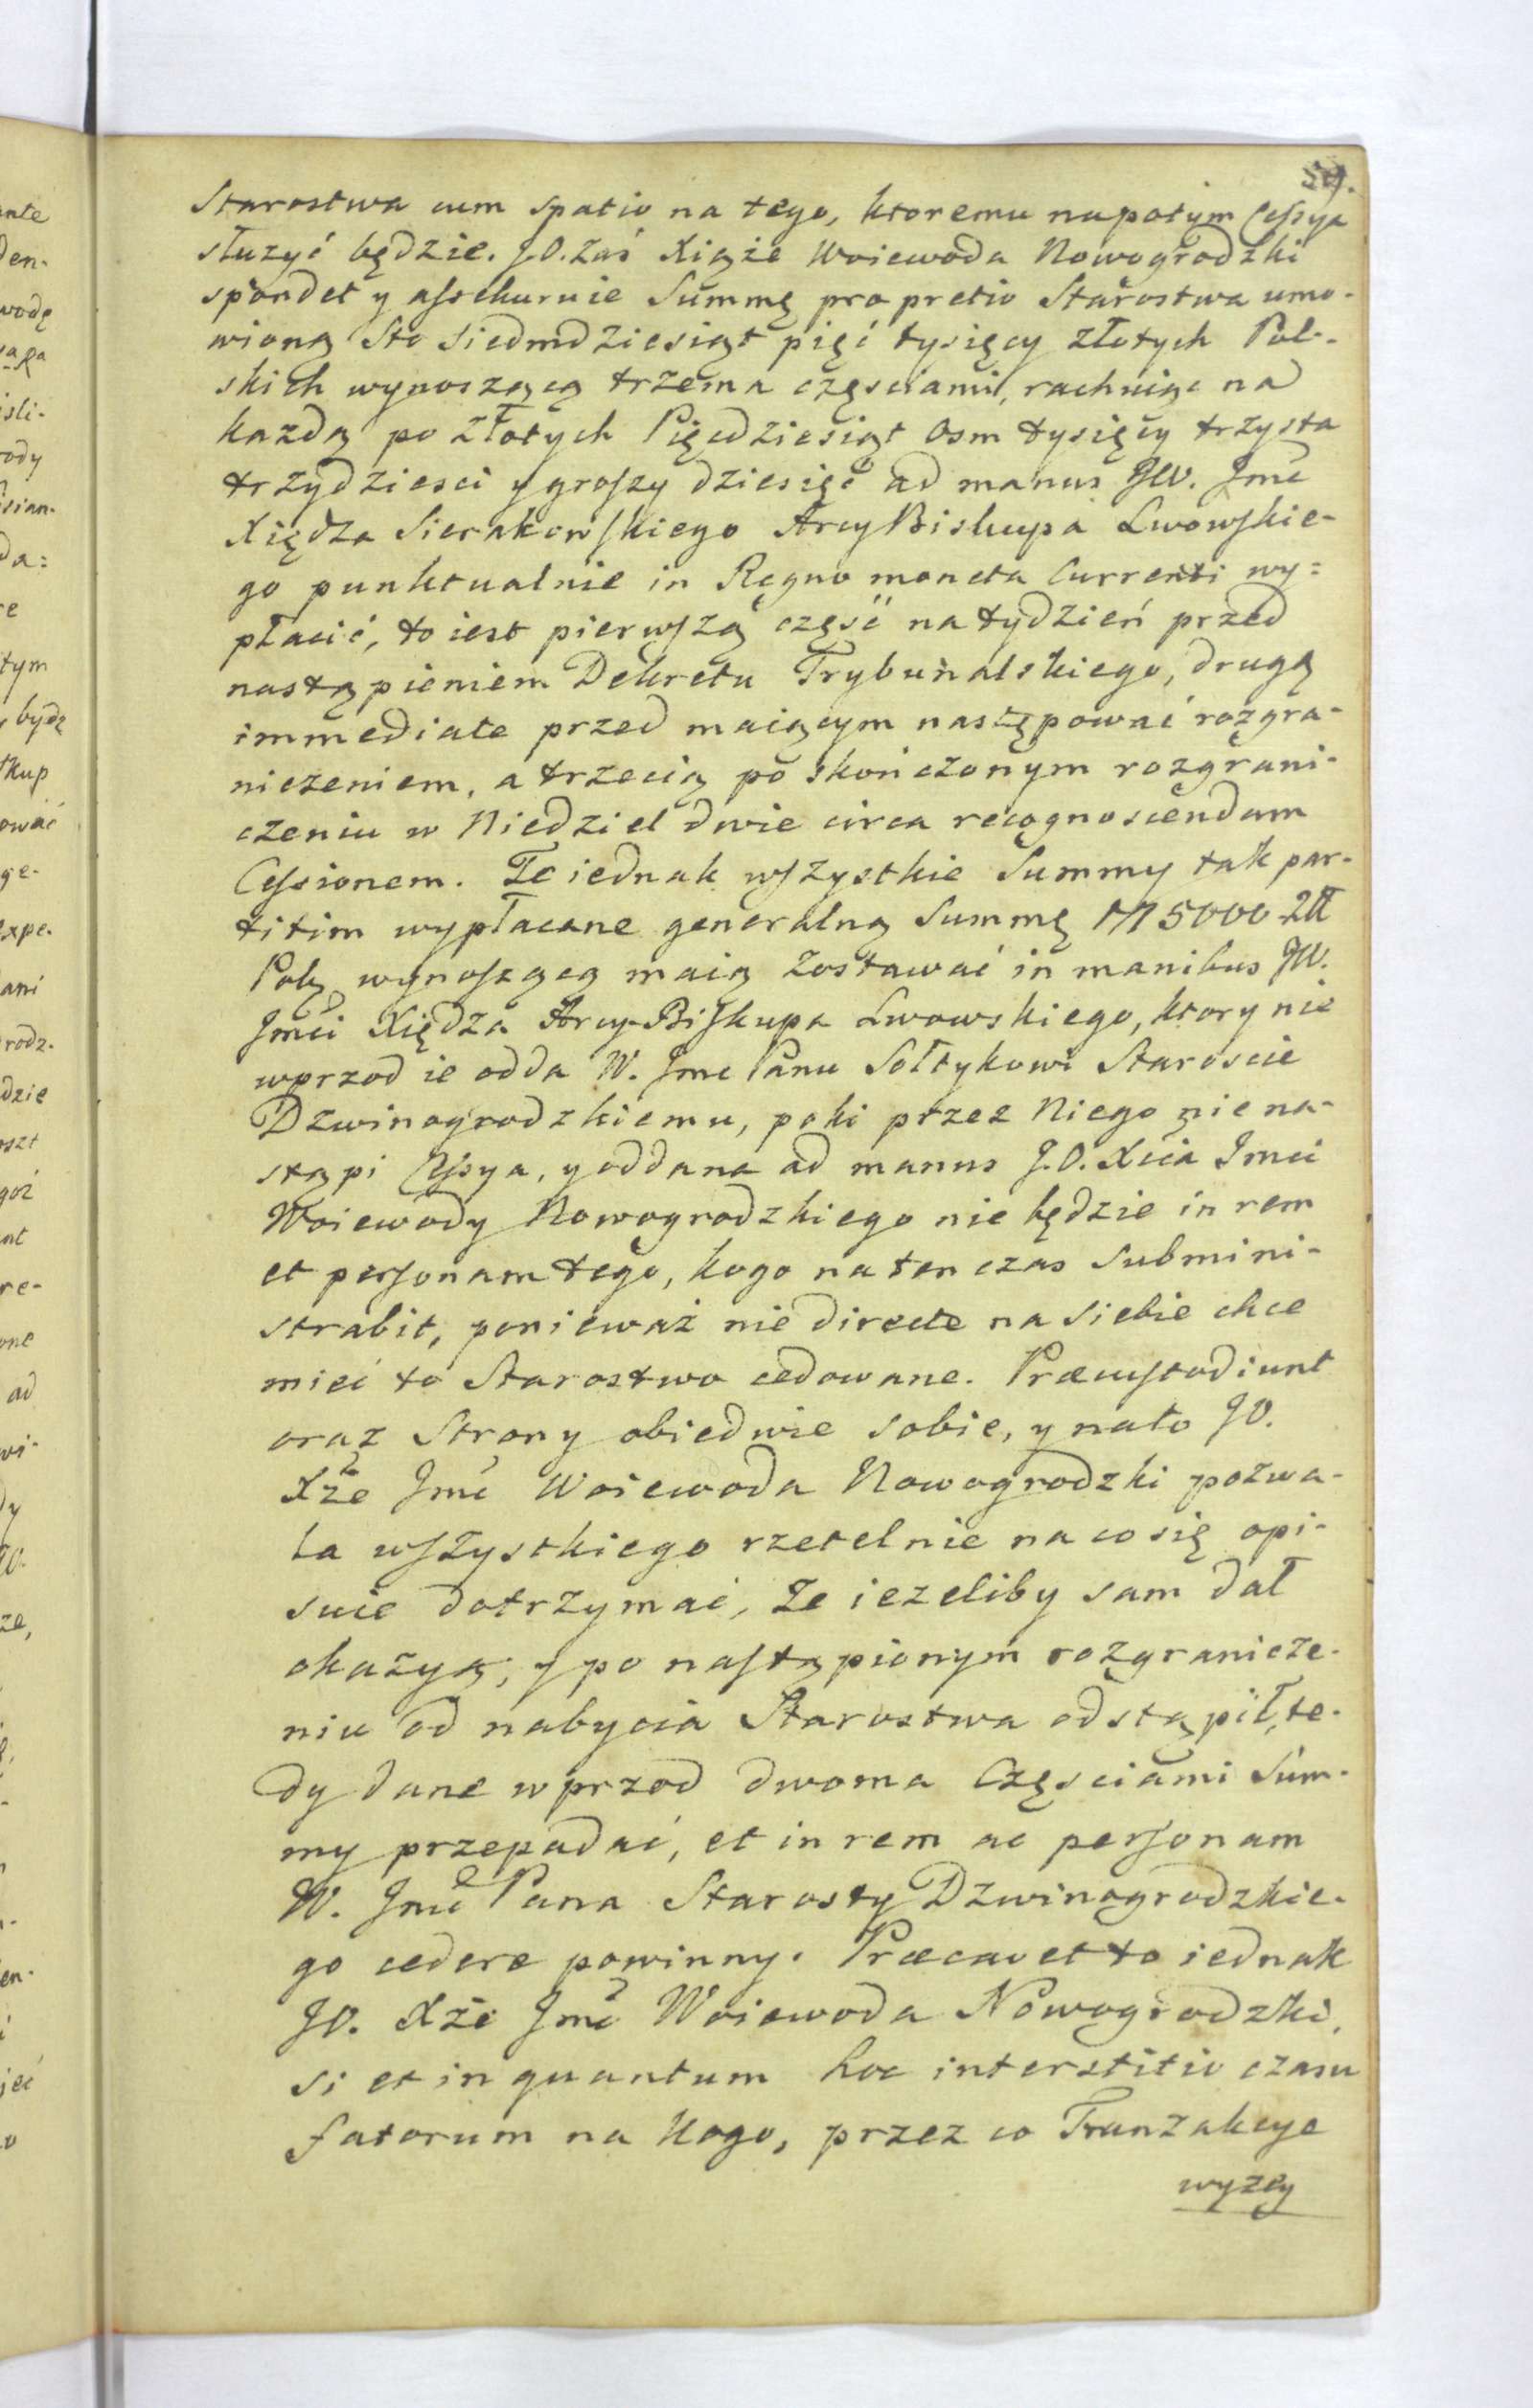 59.
Starostwa cum spatio na tego, ktoremu napotym Cessya
służyć będzie. J.O. zaś Xiąże Woiewoda Nowogrodzki
spondet y assekuruie Summę pro pretio Starostwa umo-
wioną Sto siedmdziesiąt pięć tysięcy złotych Pol-
skich wynoszącą trzema częsciami, rachuiąc na
każdą po złotych Pięćdziesiąt Osm tysięcy trzysta
trzydziesci y groszy dziesięć ad manus JW. Jmć
Xiędza Sierakowskiego ArcyBiskupa Lwowskie-
go punktualnie in Regno moneta Currenti wy=
płacić, to iest pierwszą część na tydzień przed
nastąpieniem Dekretu Trybunalskiego, drugą
immediate przed maiącym następować rozgra-
niczeniem, a trzecią po skończonym rozgrani-
czeniu w Niedziel dwie circa recognoscendam
Cessionem. Te iednak wszystkie Summy tak par-
titim wypłacane generalną Summę 175000 Złł
Polą wynoszącą maią zostawać in manibus JW.
Jmći Xiędza Arcy-Biskupa Lwowskiego, ktory nie
wprzod ie odda W. Jmć Panu Sołtykowi Staroscie
Dzwinogrodzkiemu, poki przez Niego nie na-
stąpi Cessya, y oddana ad manus J.O. Xcia Jmci
Woiewody Nowogrodzkiego nie będzie in rem
et personam tego, kogo na ten czas submini-
strabit, ponieważ nie directe na siebie chce
mieć to Starostwo cedowane. Præcustodiunt
oraz Strony obiedwie sobie, y na to JO.
Xże Jmć Woiewoda Nowogrodzki pozwa-
la wszystkiego rzetelnie na co się opi-
suie dotrzymać, że ieżeliby sam dał
okazyą, y po nastąpionym rozgranicze-
niu od nabycia Starostwa odstąpił, te-
dy dane wprzod dwoma Częsciami Sum-
my przepadać, et in rem ac personam
W. Jmć Pana Starosty Dzwinogrodzkie-
go cedere powinny. Præcavet to iednak
JO. Xże Jmć Woiewoda Nowogrodzki,
si et in quantum hoc interstitio czasu
fatorum na kogo, przez co Tranzakcye
wyzey